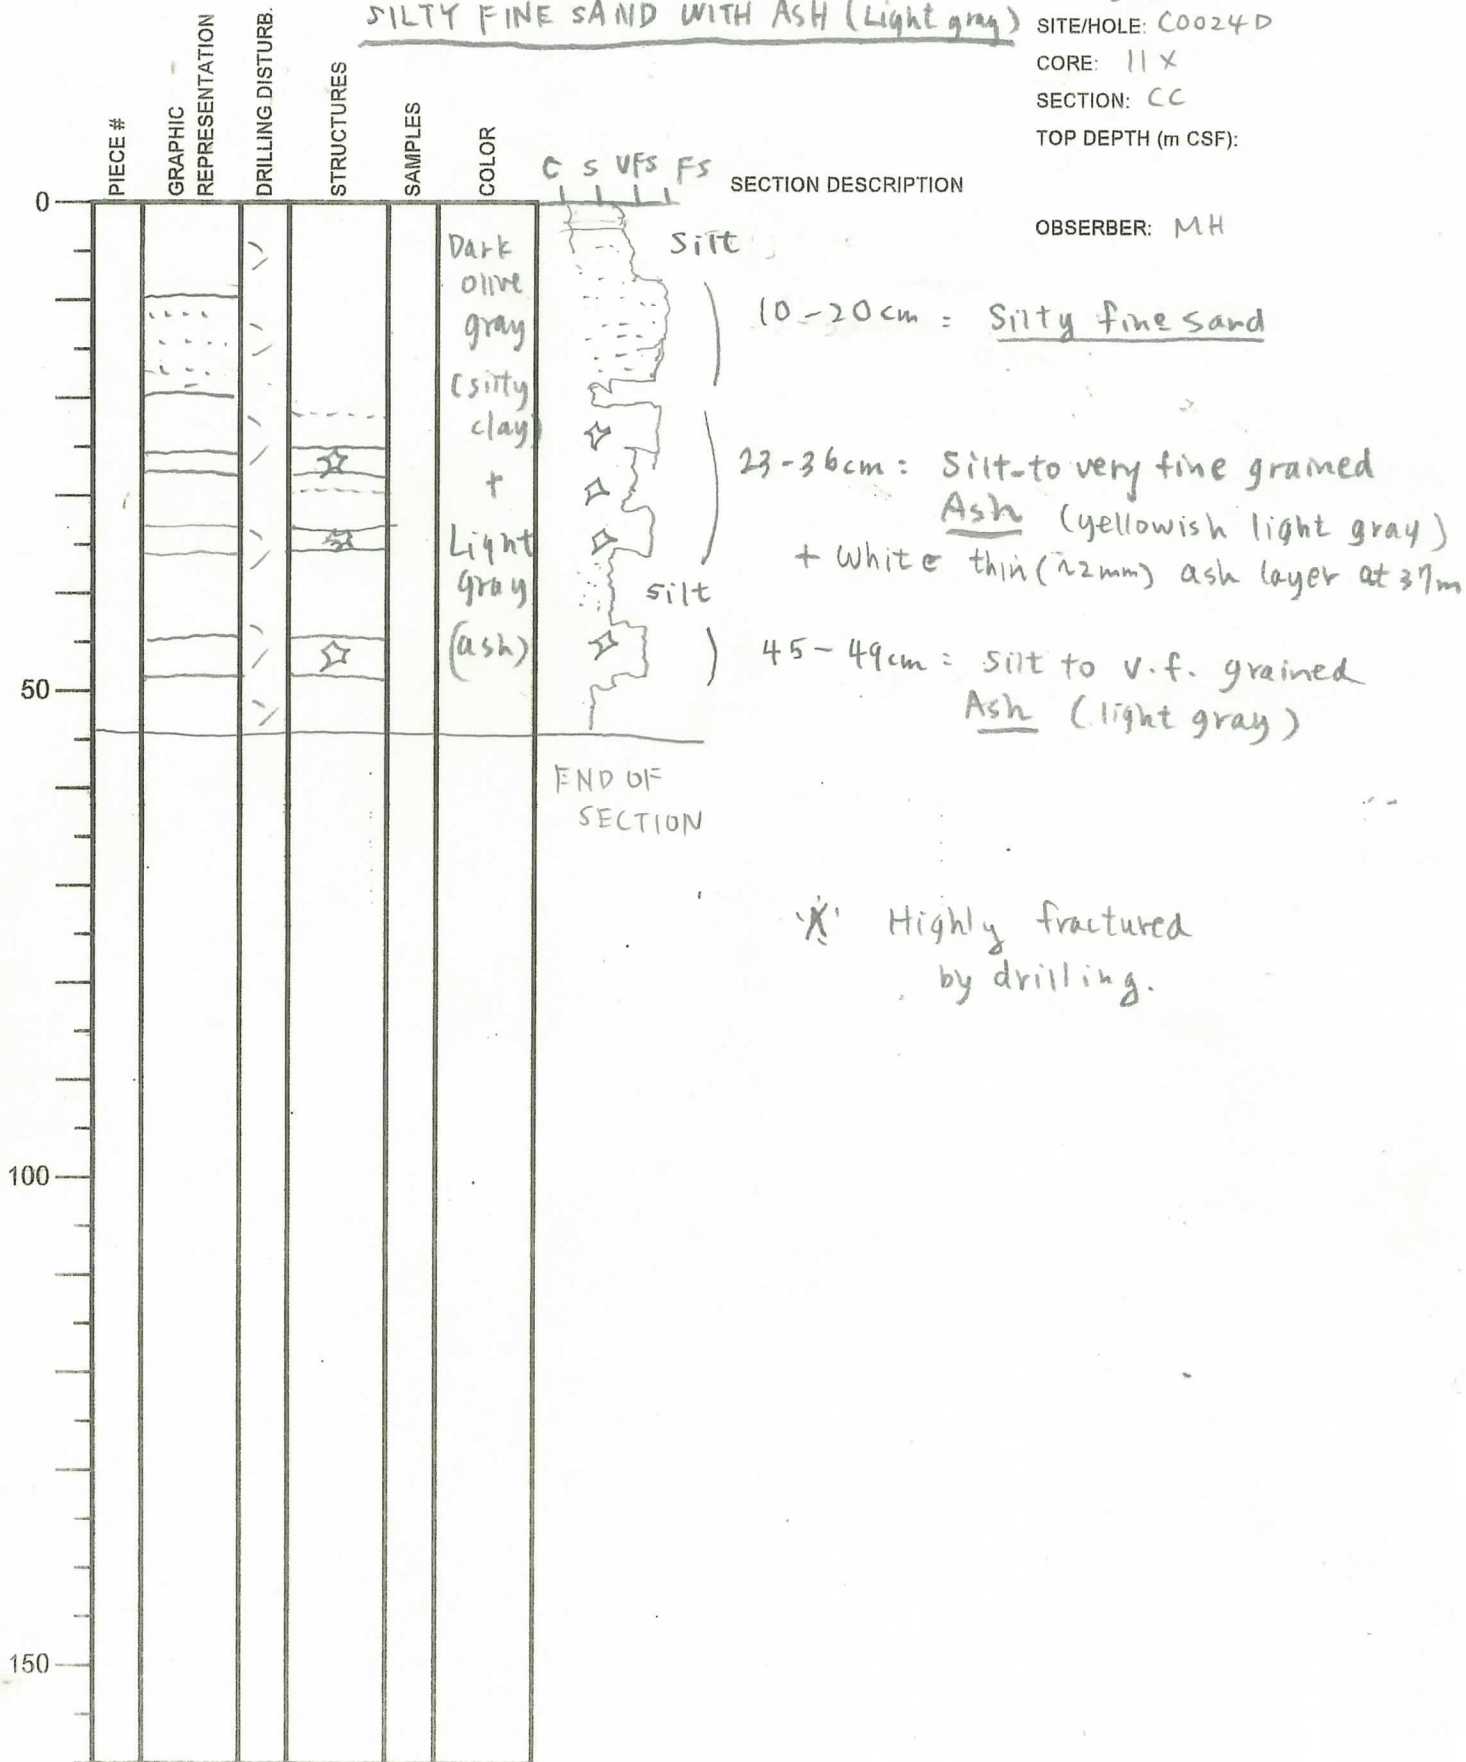 SILTY FINE SAND WITH ASH (Light gray)
SITE/HOLE: C0024D
CORE: 11X
SECTION: CC
TOP DEPTH (m CSF):
OBSERBER: MH
PIECE #
GRAPHIC
REPRESENTATION
DRILLING DISTURB.
STRUCTURES
SAMPLES
COLOR
C S VFS FS
SECTION DESCRIPTION
0
50
100
150
Dark
olive
gray
(silty
clay)
+
Light
gray
(ash)
Silt
10-20cm = Silty fine sand
23-36cm = Silt-to very fine grained
Ash (yellowish light gray)
+ white thin (~2mm) ash layer at 37m
silt
45-49cm = Silt to v.f. grained
Ash (light gray)
END OF
SECTION
※ Highly fractured
by drilling.